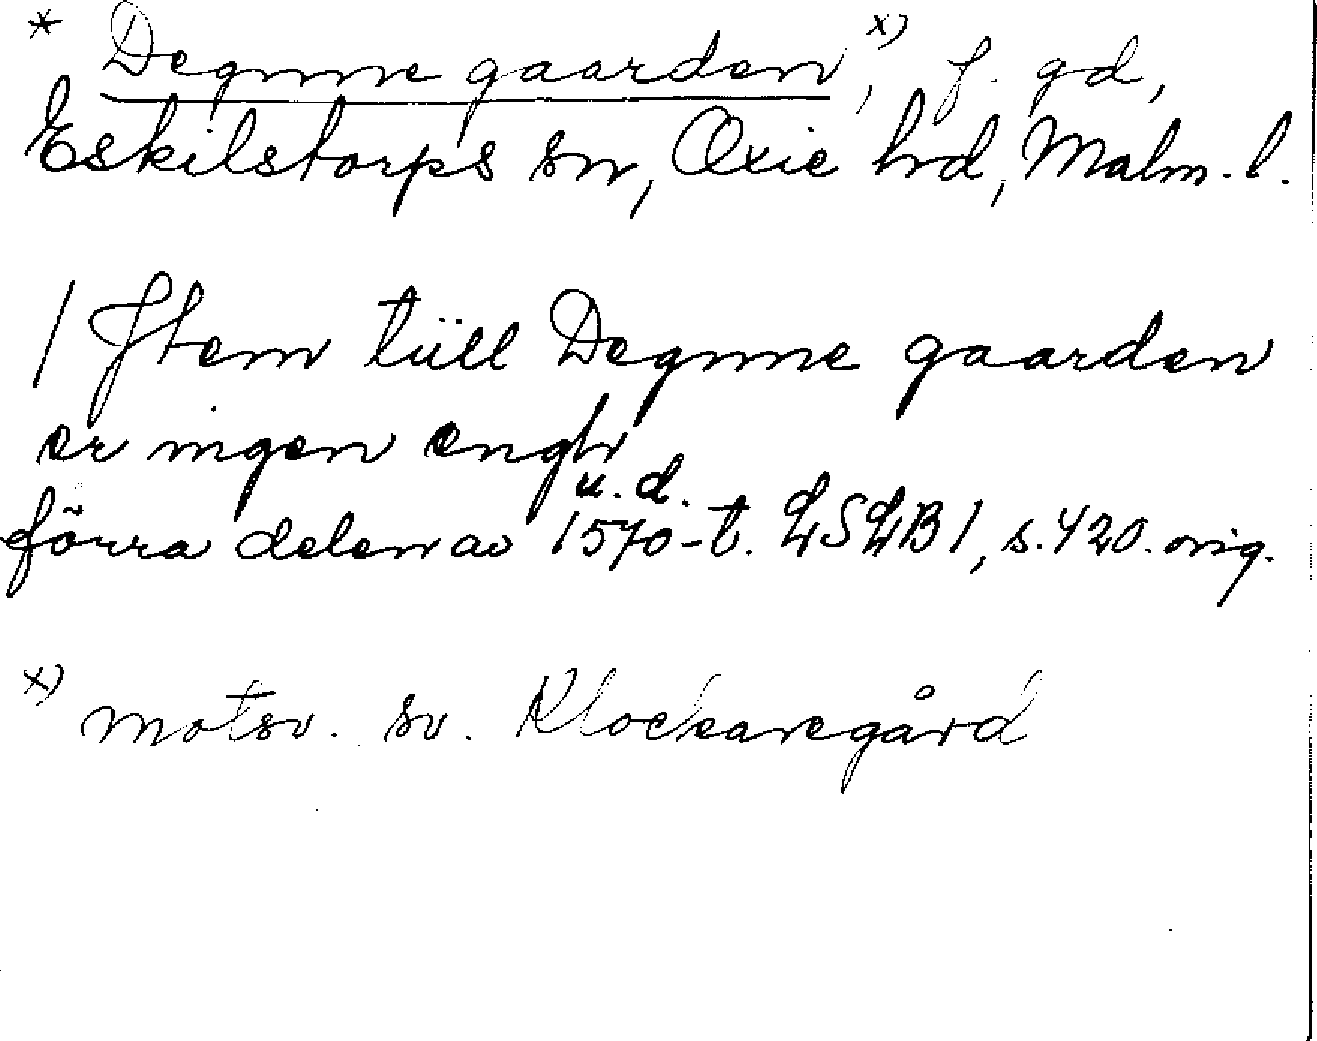 * Degnne gaarden x), f. gd,
Eskilstorps sn, Oxie hd, Malm. l.
/ Jtem tüll Degnne gaarden
er ingen engh
u. d.
förra delen av 1570-t. LSLB 1, s. 420. orig.
x) motsv. sv. Klockaregård